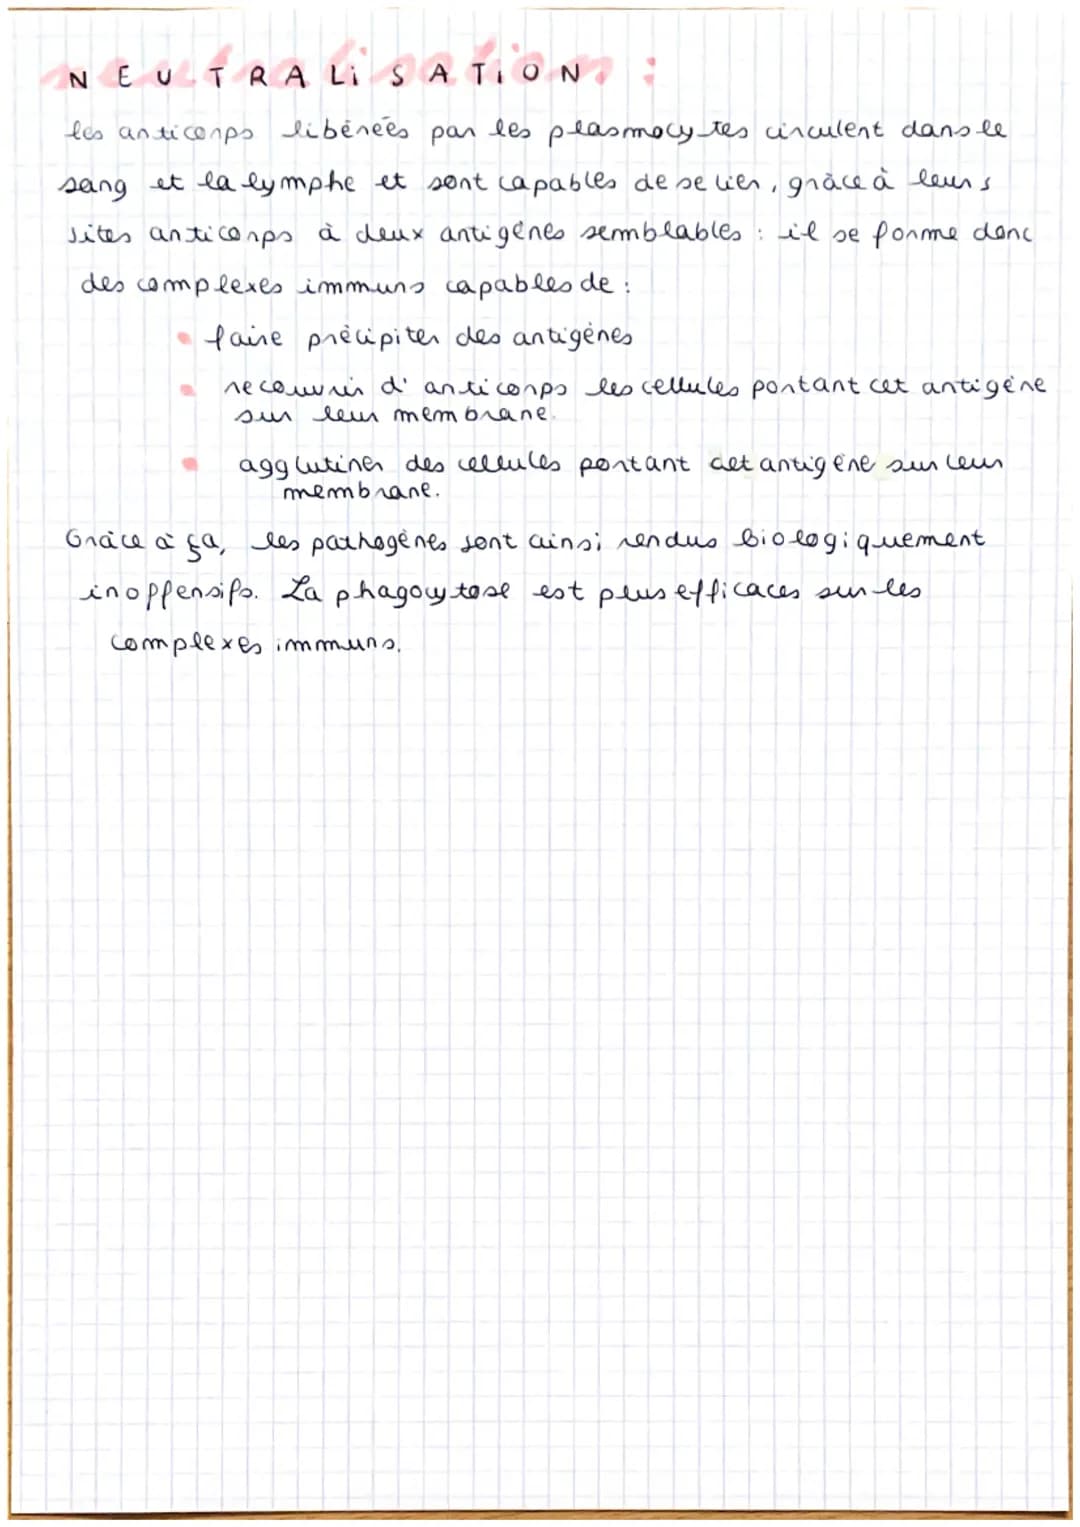 NEUTRALiSATiON :
les anticorps libéréés par les plasmocytes circulent dans le
sang et la lymphe et sont capables de se lier, grâce à leurs
sites anticorps à deux antigènes semblables : il se forme donc
des complexes immuns capables de :
• faire précipiter des antigènes
• recouvrir d'anticorps les cellules portant cet antigène
sur leur membrane.
• agglutiner des cellules portant cet antigène sur leur
membrane.
Grâce à ça, les pathogènes sont ainsi rendus biologiquement
inoffensifs. La phagocytose est plus efficaces sur les
complexes immuns.